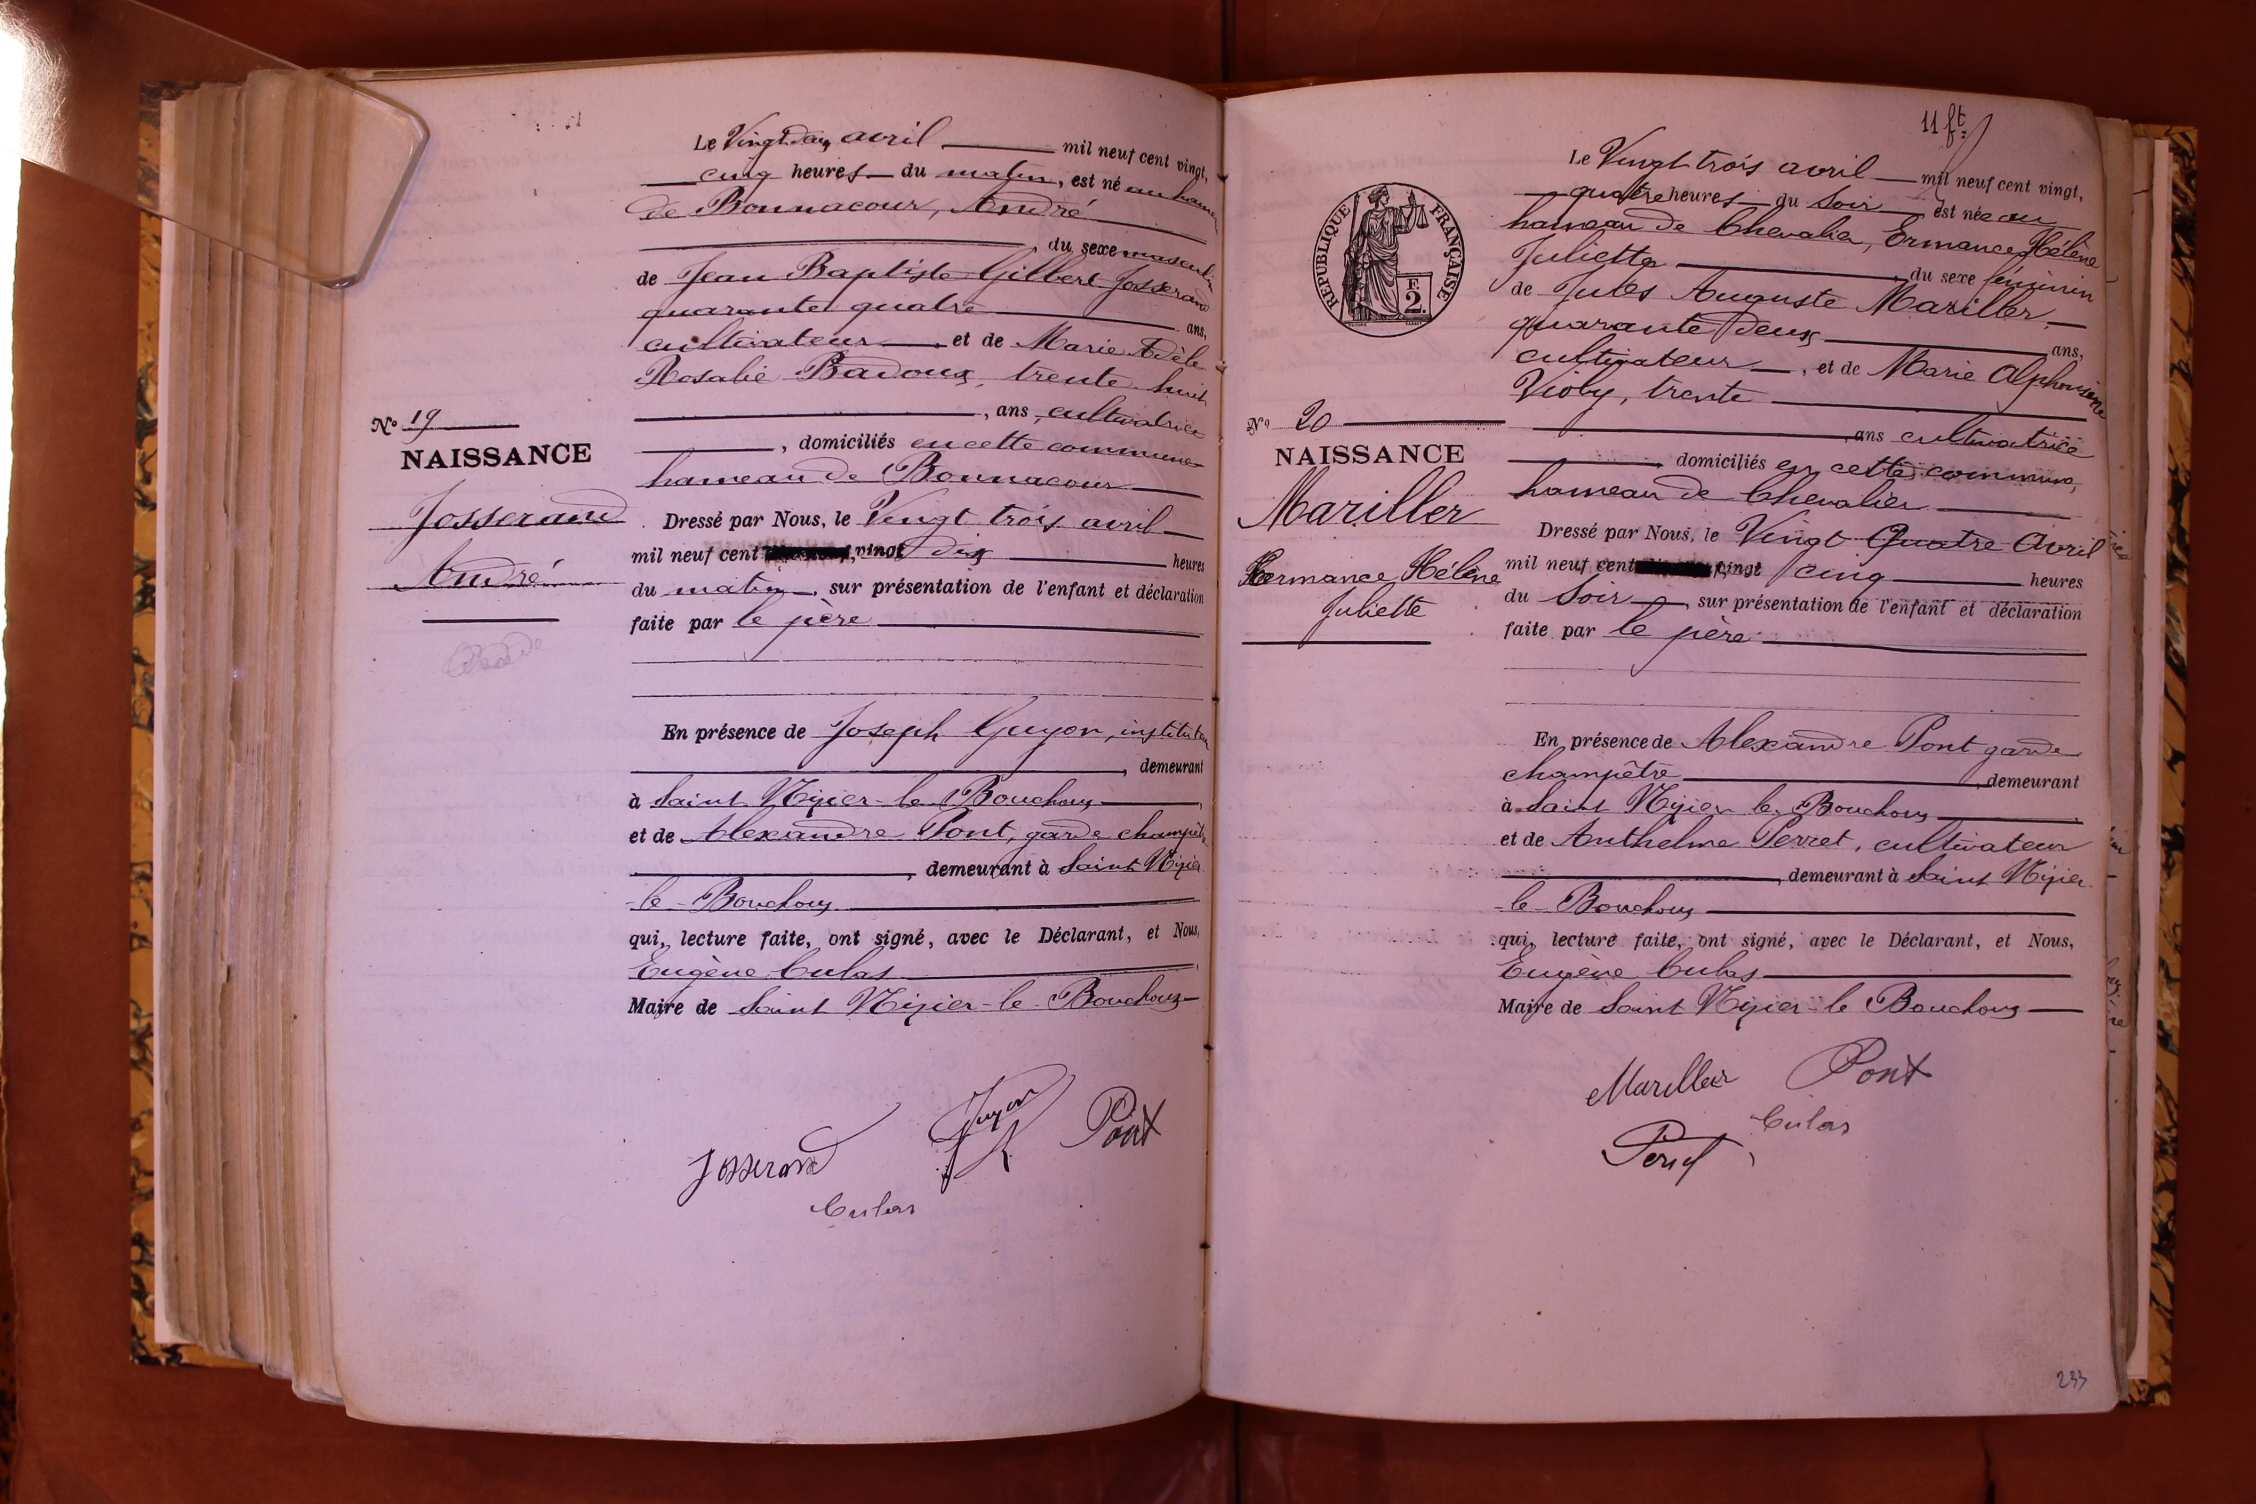 Le Vingt deux avril mil neuf cent vingt,
cinq heures du matin, est né au hameau
de Bonnacour, André
, du sexe masculin
de Jean Baptiste Gilbert Josserand
quarante quatre ans,
cultivateur et de Marie Adèle
Rosalie Badoux, trente huit
, ans, cultivatrice
, domiciliés en cette commune
hameau de Bonnacour
Dressé par Nous, le Vingt trois avril
mil neuf cent vingt dix heures
du matin, sur présentation de l'enfant et déclaration
faite par le père
En présence de Joseph Guyon, instituteur
, demeurant
à Saint Nizier-le-Bouchoux,
et de Alexandre Pont, garde champêtre
, demeurant à Saint Nizier
-le-Bouchoux
qui, lecture faite, ont signé, avec le Déclarant, et Nous,
Eugène Culas,
Maire de Saint Nizier-le-Bouchoux
N° 19
NAISSANCE
Josserand
André
Josserand Guyon Pont
Culas
11 ft
Le Vingt trois avril mil neuf cent vingt,
quatre heures du soir, est née au
hameau de Chevalier, Ermance Hélène
Juliette, du sexe féminin
de Jules Auguste Mariller
quarante deux ans,
cultivateur, et de Marie Alphonsine
Vioby, trente
, ans cultivatrice
, domiciliés en cette commune,
hameau de Chevalier
Dressé par Nous, le Vingt Quatre Avril
mil neuf cent vingt cinq heures
du soir, sur présentation de l'enfant et déclaration
faite par le père
En présence de Alexandre Pont garde
champêtre, demeurant
à Saint Nizier le Bouchoux,
et de Anthelme Perret, cultivateur
, demeurant à Saint Nizier
-le-Bouchoux
qui, lecture faite, ont signé, avec le Déclarant, et Nous,
Eugène Culas
Maire de Saint Nizier-le Bouchoux
REPUBLIQUE FRANÇAISE
F. 2.
N° 20
NAISSANCE
Mariller
Hermance Hélène
Juliette
Mariller Pont
Culas
Perret
233